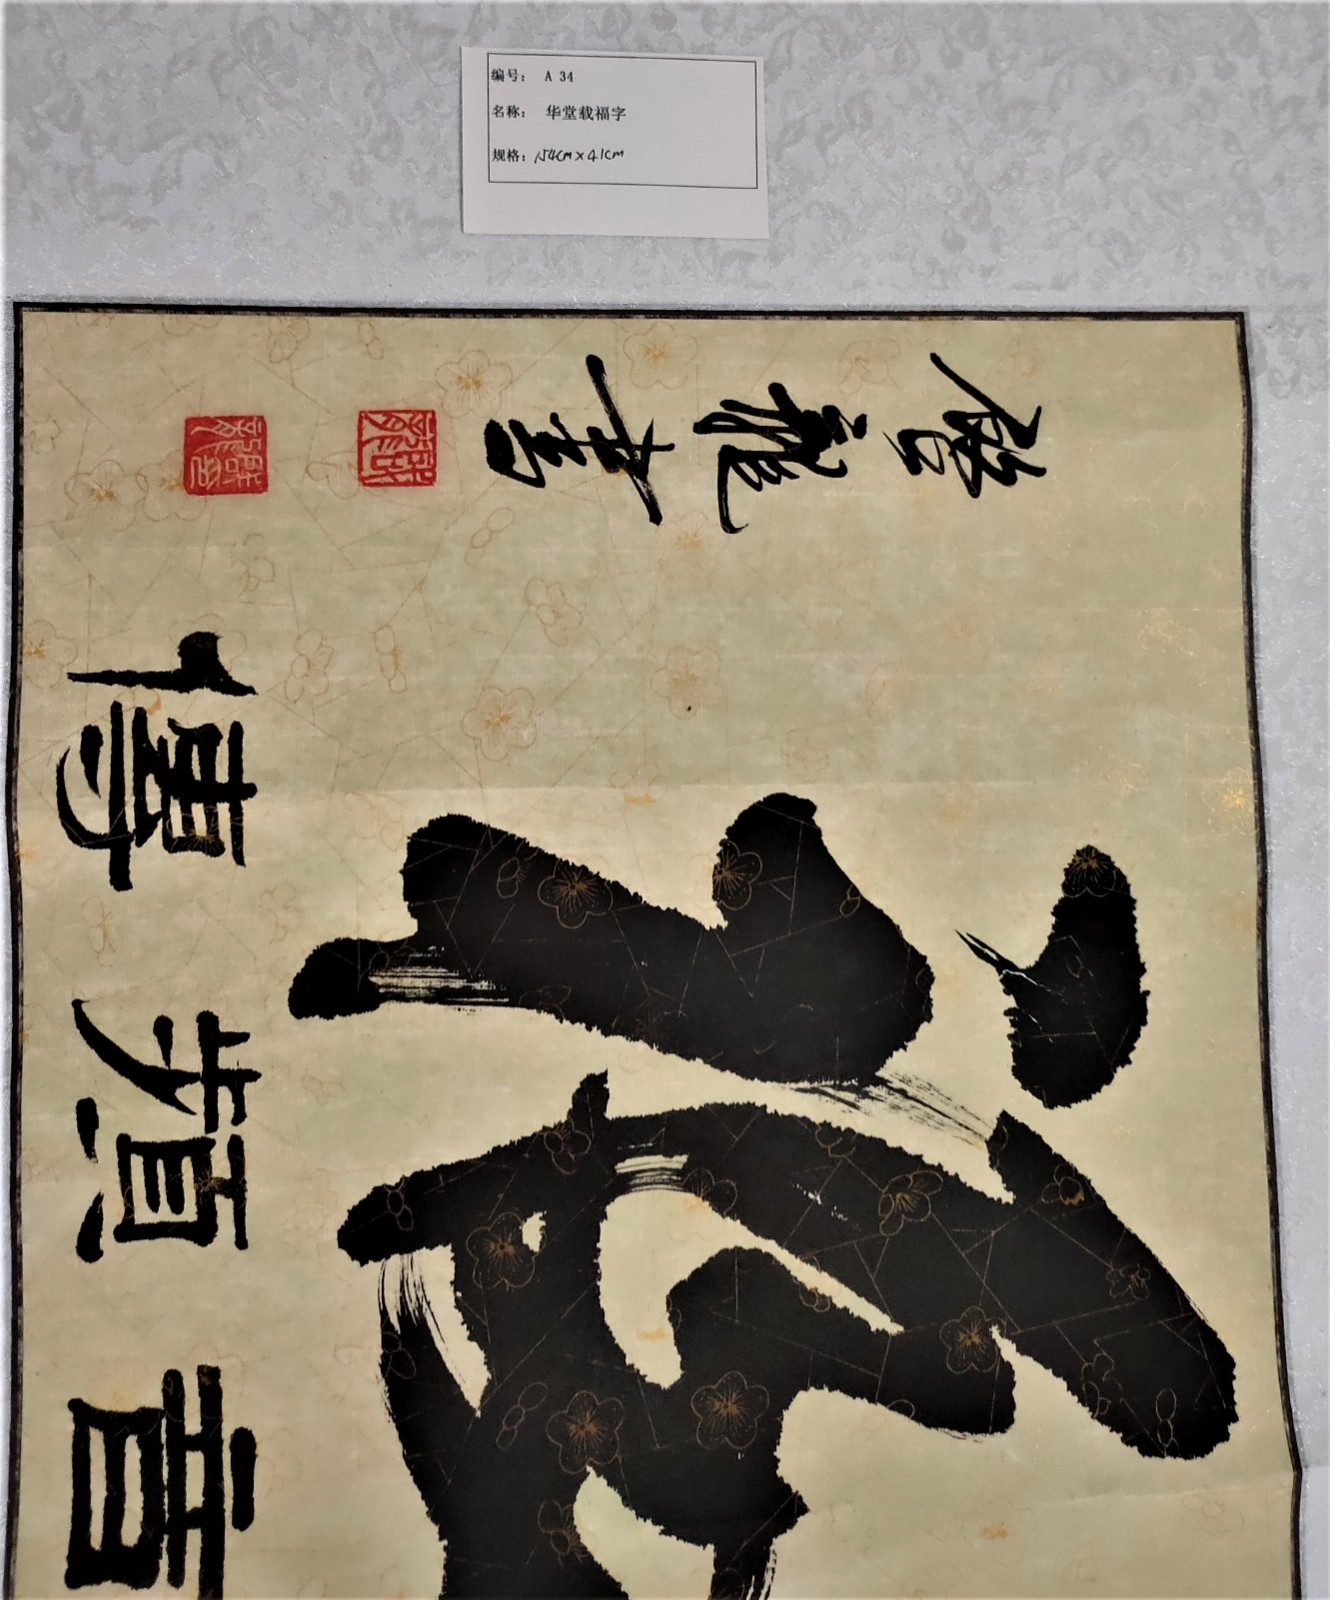 编号： A 34
名称： 华堂载福字
规格：154cm×41cm
啓龍書
音頻傳